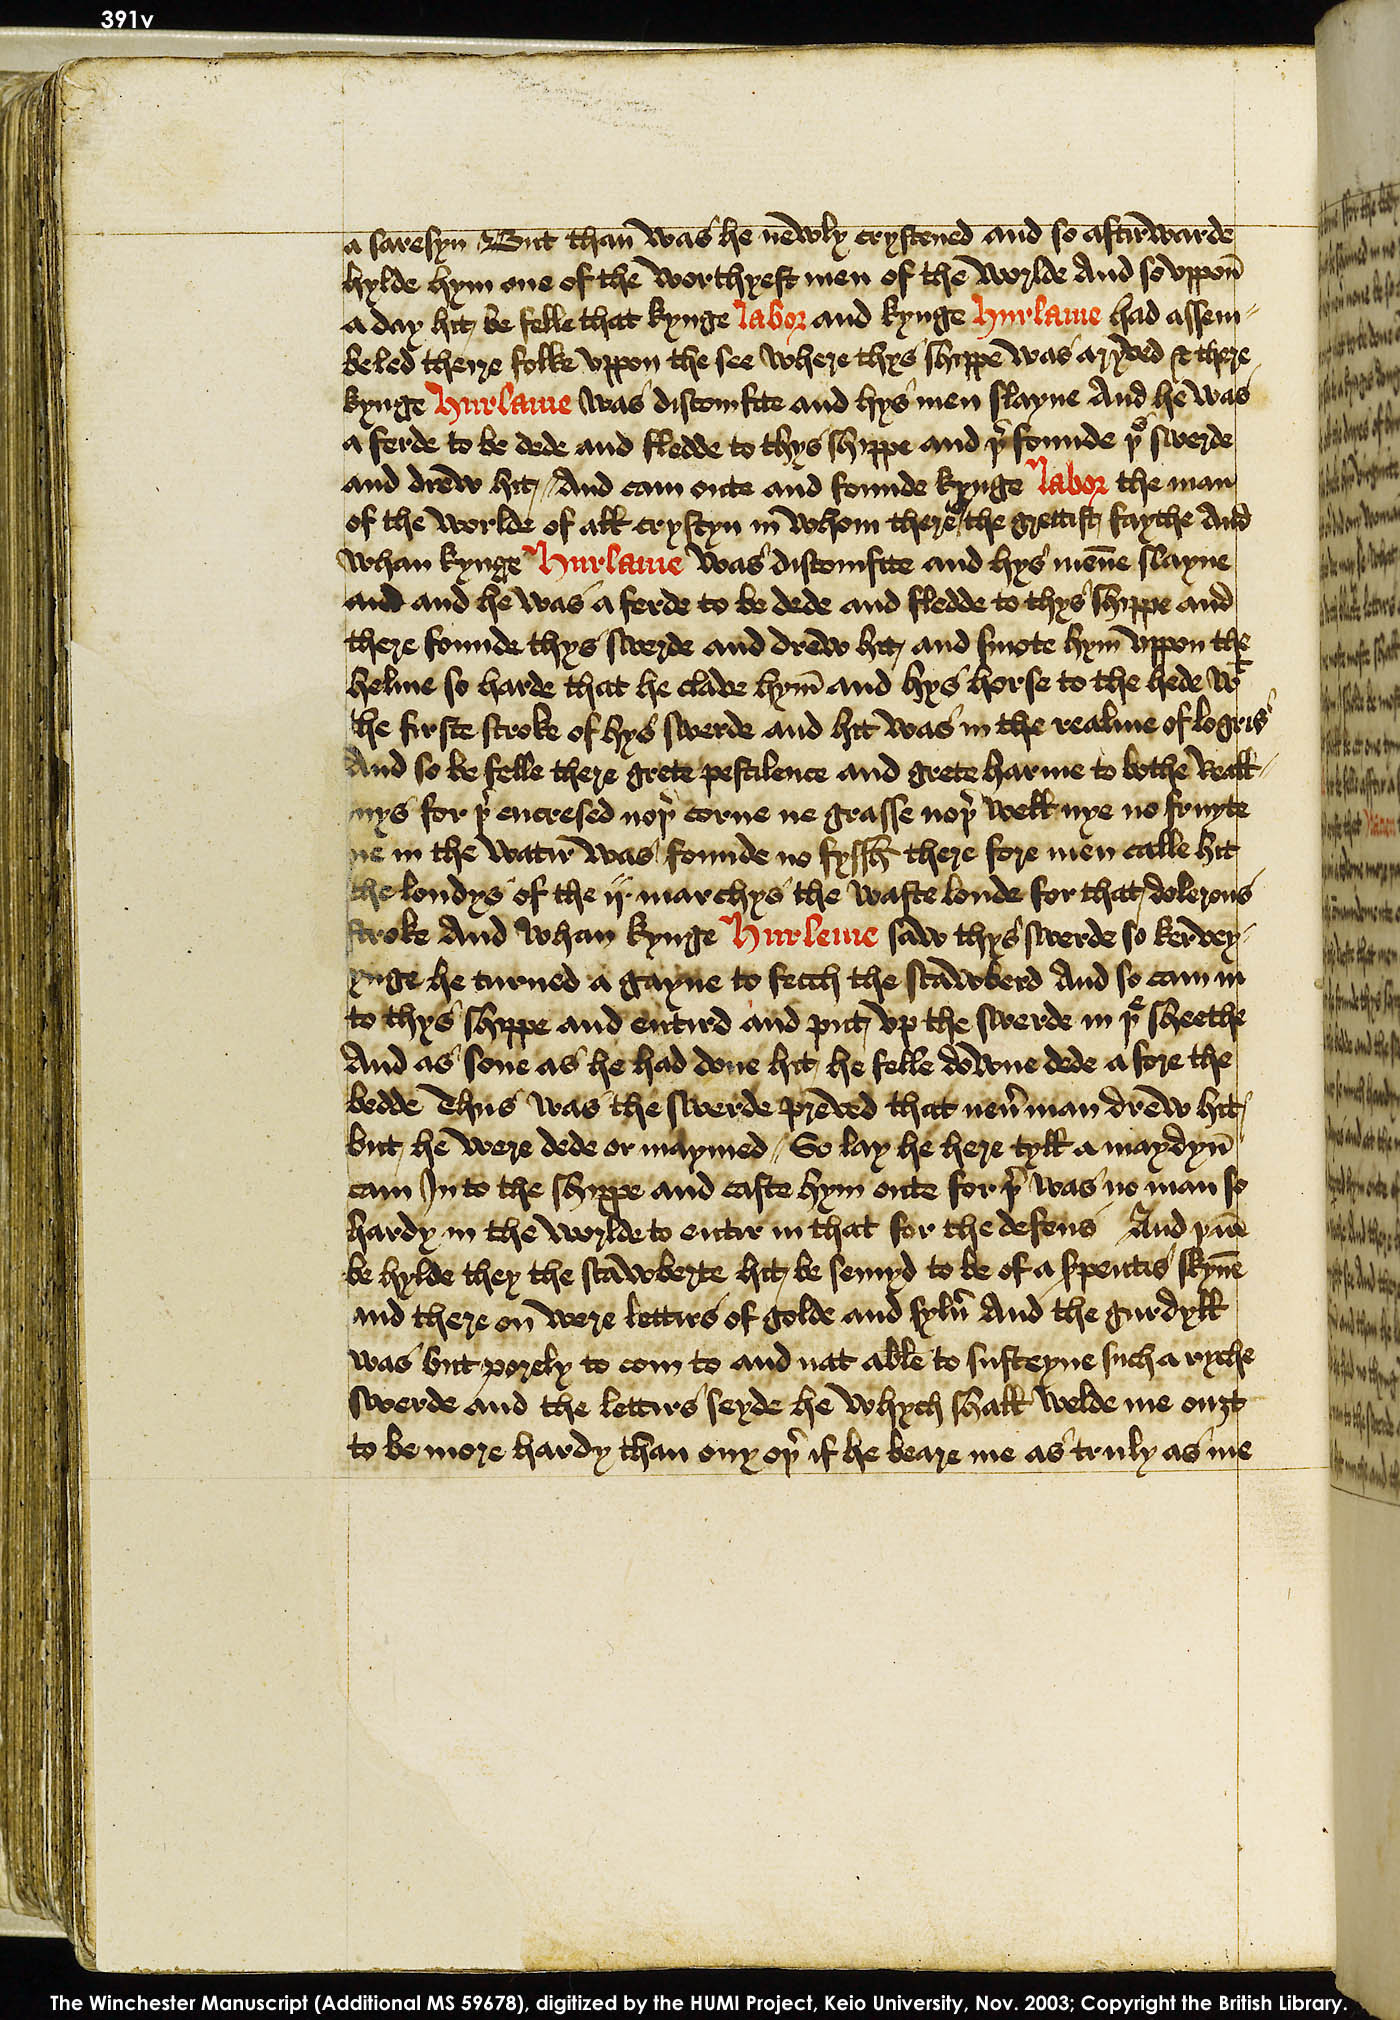 391v
a saresyn But than was he newly crystened and so aftirwarde
hylde hym one of the worthyest men of the worlde And so uppon
a day hit be felle that kynge labor and kynge hurlame had assem-
beled theire folke uppon the see where thys shippe was aryved & there
kynge hurlame was discomfite and hys men slayne And he was
a ferde to be dede and fledde to thys shippe and þr founde þs swerde
and drew hit And cam oute and founde kynge labor the man
of the worlde of all crystyn in whom there the grettist faythe And
whan kynge hurlame was discomfite and hys menne slayne
and and he was a ferde to be dede and fledde to thys shippe and
there founde thys swerde and drew hit and smote hym uppon the
helme so harde that he clave hym and hys horse to the hede wt
the firste stroke of hys swerde and hit was in the realme of logris
And so be felle there grete pestilence and grete harme to bothe Reall-
mys for þr encresed noþr corne ne grasse noþr well nye no fruyte
ne in the watir was founde no fyssh there fore men calle hit
the londys of the ij marchys the waste londe for that dolerous
stroke And whan kynge hurleme saw thys swerde so kervey-
ynge he turned a gayne to fecch the scawberd And so cam in
to thys shippe and entird and put up the swerde in þe sheethe
And as sone as he had done hit he felle downe dede a fore the
bedde Thus was the swerde preved that never man drew hit
but he were dede or maymed So lay he here tyll a maydyn
cam In to the shippe and caste hym oute for þr was no man so
hardy in the worlde to entir in that for the defens And
be hylde they the scawberte hit be semyd to be of a serpentis skynne
and there on were lettirs of golde and sylver And the gurdyll
was but porely to com to and nat able to susteyne such a ryche
swerde and the lettirs seyde he whych shall welde me ouȝt
to be more hardy than ony oþr if he beare me as truly as me
The Winchester Manuscript (Additional MS 59678), digitized by the HUMI Project, Keio University, Nov. 2003; Copyright the British Library.